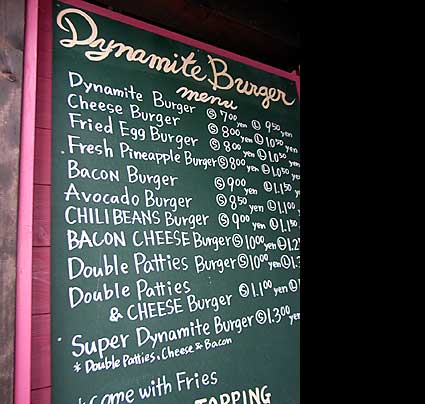 Dynamite Burger
menu
Dynamite Burger Ⓢ 700 yen Ⓛ 950 yen
Cheese Burger Ⓢ 800 yen Ⓛ 1050 yen
Fried Egg Burger Ⓢ 800 yen Ⓛ 1050 yen
Fresh Pineapple Burger Ⓢ 800 yen Ⓛ 1050
Bacon Burger Ⓢ 900 yen Ⓛ 1.150
Avocado Burger Ⓢ 850 yen Ⓛ 1.100
CHILI BEANS Burger Ⓢ 900 yen Ⓛ 1.150
BACON CHEESE Burger Ⓢ 1000 yen Ⓛ 1.2
Double Patties Burger Ⓢ 1000 yen Ⓛ 1.3
Double Patties
& CHEESE Burger Ⓢ 1.100 yen Ⓛ
Super Dynamite Burger Ⓢ 1.300 yen
* Double Patties. Cheese & Bacon
Come with Fries
TOPPING